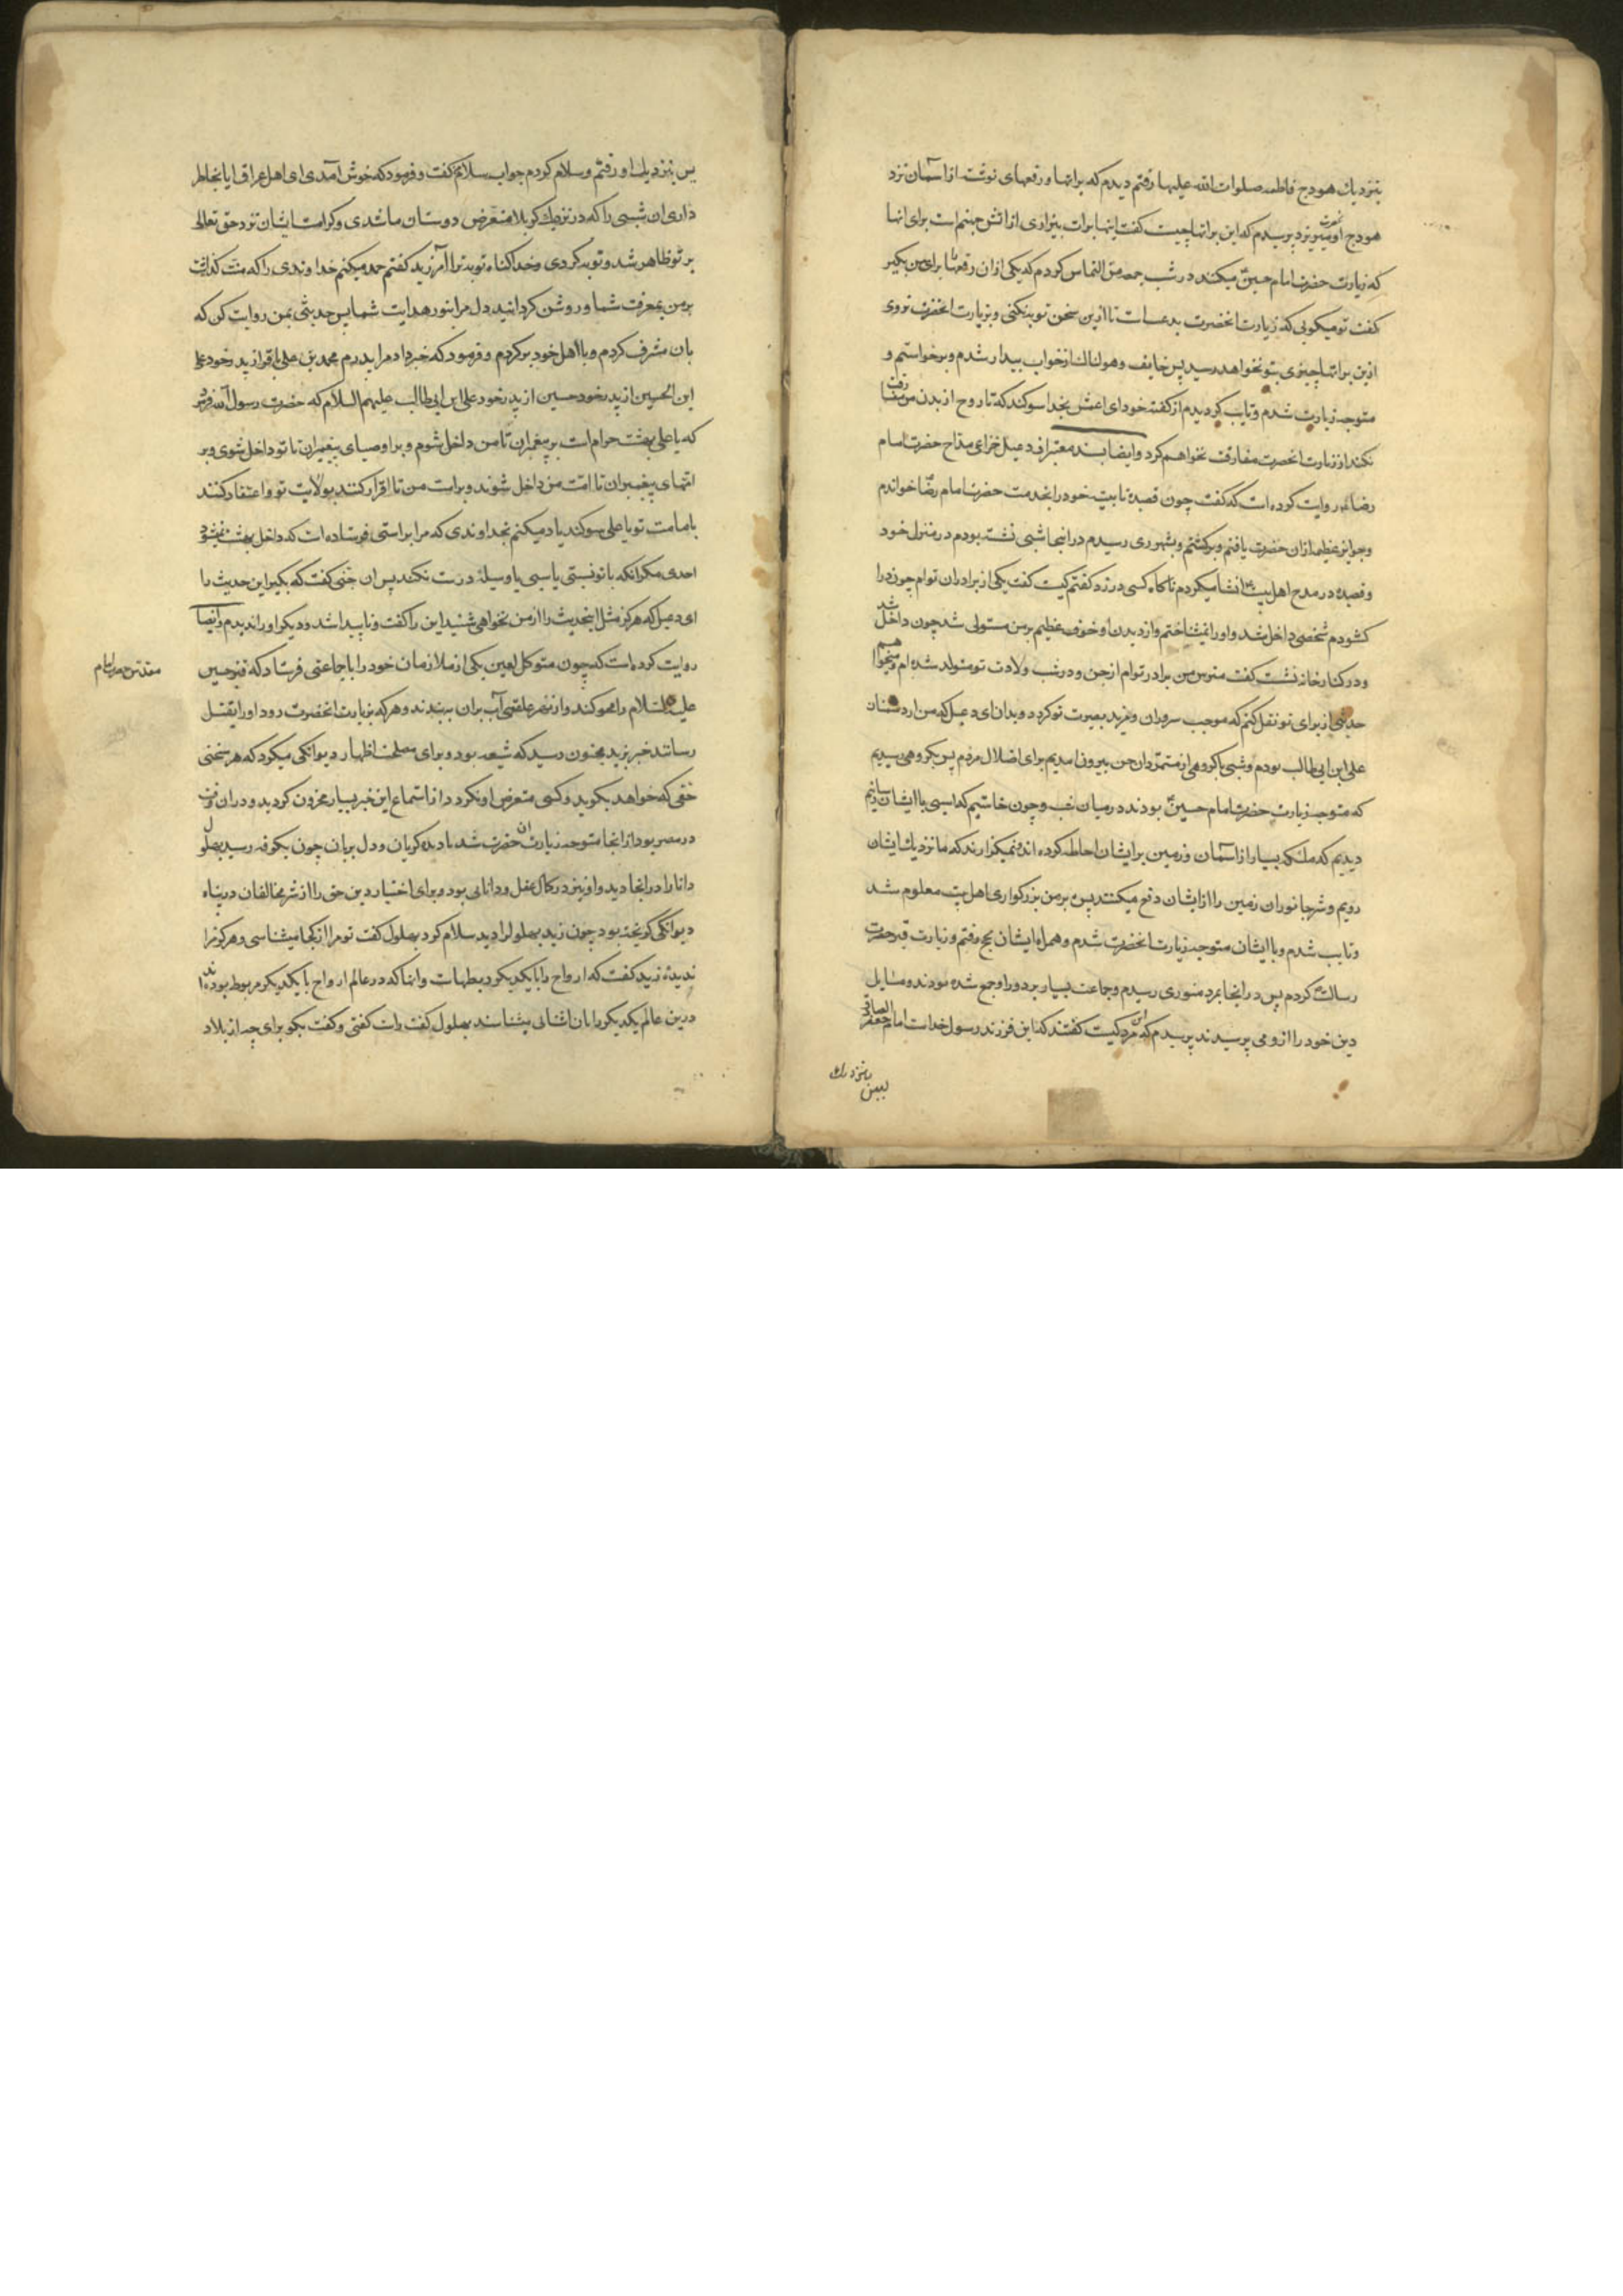 بنزدیك هودج فاطمه صلوات الله علیها رفتم دیدم که براتها و رقعهای نوشته از آسمان نزد
هودج او میریزد پرسیدم که این براتها چیست گفت اینها برات بیزاری از اتش جهنم است برای انها
که زیارت حضرت امام حسین میکنند در شب جمعه من التماس کردم که یکی از ان رقعها برای من بکیر
کفت تو میکویی که زیارت انحضرت بدعست تا ازین سخن توبه نکنی و بزیارت انحضرت نروی
ازین براتها چیزی بتو نخواهد رسید پس خایف و هولناك از خواب بیدار شدم و برخواستم و
متوجه زیارت شدم و تایب کردیدم از کفته خود ای اعمش بخدا سوکند که تا روح از بدن من مفارقت
نکند از زیارت انحضرت مفارقت نخواهم کرد وایضا بسند معتبر از دعبل خزاعی مداح حضرت امام
رضا روایت کرده است که کفت چون قصیده تاییه خود را بخدمت حضرت امام رضا خواندم
و جوایز عظیمه از ان حضرت یافتم و برکشتم و بشهر ری رسیدم در انجا شبی نشسته بودم در منزل خود
و قصیده در مدح اهل بیت انشا میکردم ناکاه کسی در زد کفتم کیست کفت یکی از برادران توام چون در را
کشودم شخصی داخل شد و او را نمیشناختم و از دیدن او خوف عظیم بر من مستولی شد چون داخل شد
و در کنار خانه نشست کفت مترس من برادر توام از جن و در شب ولادت تو متولد شده ام و میخواهم
حدیثی از برای تو نقل کنم که موجب سرور ان و مزید بصیرت تو کردد و بدان ای دعبل که من از دشمنان
علی ابن ابی طالب بودم و شبی با کروهی از متمردان جن بیرون امدیم برای اضلال مردم پس بکروهی رسیدیم
که متوجه زیارت حضرت امام حسین بودند در میان شب و چون خاستیم که اسیبی با ایشان رسانیم
دیدیم که ملئکه بسیار از آسمان و زمین بر ایشان احاطه کرده اند و نمیکزارند که ما نزدیك ایشان
رویم و شر جانوران زمین را از ایشان دفع میکنند پس بر من بزرکواری اهل بیت معلوم شد
و تایب شدم و با ایشان متوجه زیارت انحضرت شدم و همراه ایشان بحج رفتم و زیارت قبر حضرت
رسالت کردم پس در انجا بمرد منوری رسیدم و جماعت بسیار بر دور او جمع شده بودند و مسایل
دین خود را از و می پرسیدند پرسیدم که این مرد کیست کفتند که این فرزند رسول خداست امام جعفر الصادق
پس بنزدیك
پس بنزدیك او رفتم و سلام کردم جواب سلام کفت و فرمود که خوش آمدی ای اهل عراق ایا بخاطر
داری ان شبی را که در نزدیك کربلا متعرض دوستان ما شدی و کرامت ایشان نزد حق تعالی
بر تو ظاهر شد و توبه کردی و خدا کناه تو به ترا آمرزید کفتم حمد میکنم خداوندی را که منت کذاشت
بر من بمعرفت شما و روشن کردانید دل مرا بنور هدایت شما پس حدیثی بمن روایت کن که
بان مشرف کردم و با اهل خود برکردم و فرمود که خبر داد مرا پدرم محمد بن علی باقر از پدر خود علی
ابن الحسین از پدر خود حسین از پدر خود علی ابن ابی طالب علیهم السلام که حضرت رسول الله فرمود
که یا علی بهشت حرام است بر پیغمبران تا من داخل شوم و بر اوصیای پیغمبران تا تو داخل شوی و بر
امتهای پیغمبران تا امت من داخل شوند و بر امت من تا اقرار کنند بولایت تو و اعتقاد کنند
بامامت تو یا علی سوکند یاد میکنم بخداوندی که مرا براستی فرستاده است که داخل بهشت نمیشود
احدی مکر انکه با تو نسبتی یا سببی یا وسیلهٔ درست نکند پس ان جنی کفت که بکیر این حدیث را
ای دعبل که هرکز مثل اینحدیث را از من نخواهی شنید این را کفت و ناپیدا شد و دیکر او را ندیدم وایضا
روایت کرده است که چون متوکل لعین یکی از ملازمان خود را با جماعتی فرستاد که قبر حسین
علیه السلام را محو کنند و از نهر علقمی آب بران ببندند و هر که بزیارت انحضرت رود او را بقتل
رسانند خبر بزید مجنون رسید که شیعه بود و برای مصلحت اظهار دیوانکی میکرد که هر سخنی
حقی که خواهد بکوید و کسی متعرض او نکردد از استماع این خبر بسیار محزون کردید و دران وقت
در مصر بود از انجا متوجه زیارت ان حضرت شد با دیده کریان و دل بریان چون بکوفه رسید بهلول
دانا را در انجا دید و او نیز در کمال عقل و دانایی بود و برای اختیار دین حق را از شر مخالفان در پناه
دیوانکی کریخته بود چون زید بهلول را دید سلام کرد بهلول کفت تو مرا از کجا میشناسی و هرکز مرا
ندیدهٔ زید کفت که ارواح را با یکدیکر ربطهاست و انها که در عالم ارواح با یکدیکر مربوط بوده اند
درین عالم یکدیکر را بان اشنایی بشناسند بهلول کفت راست کفتی و کفت بکو برای چه از بلاد